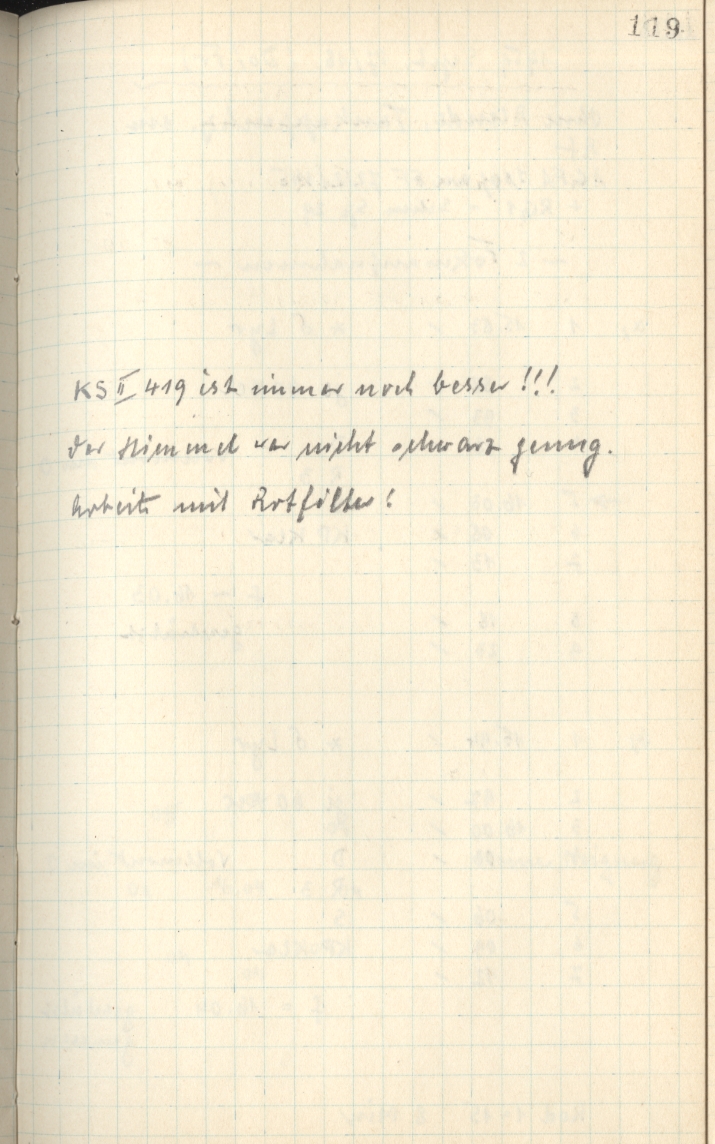 119
KS II 419 ist immer noch besser!!!
Der Himmel war nicht schwarz genug.
Arbeite mit Rotfilter!